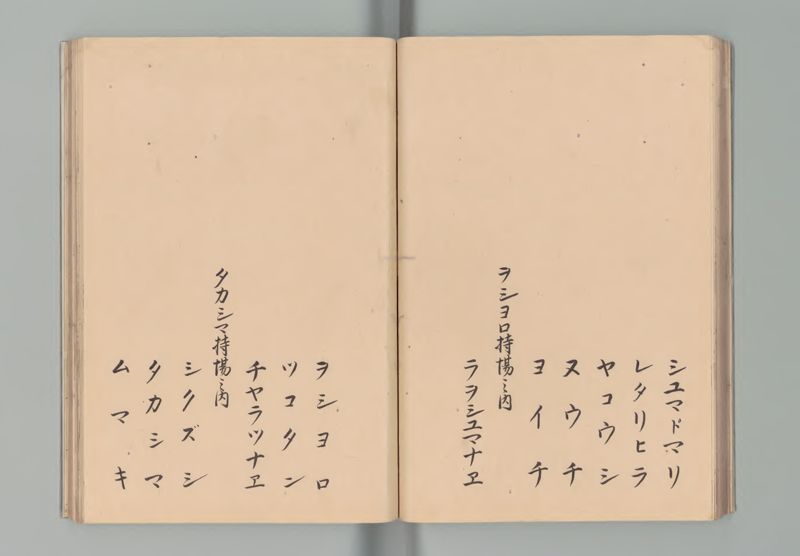 シユマドマリ
レタリヒラ
ヤコウシ
ヌウチ
ヨイチ
ヲシヨロ持場之内
ラヲシユマナヱ
ヲシヨロ
ツコタン
チヤラツナヱ
タカシマ持場之内
シクズシ
タカシマ
ムマキ